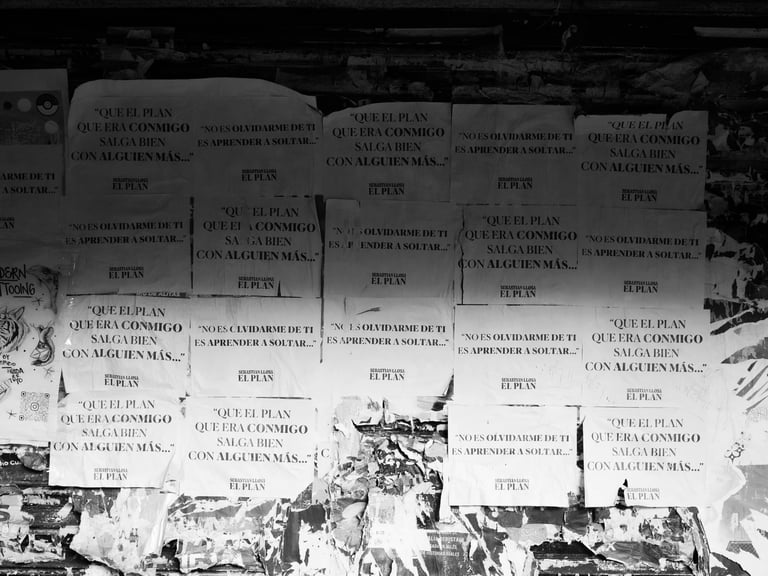 “QUE EL PLAN
QUE ERA CONMIGO
SALGA BIEN
CON ALGUIEN MÁS...”
SEBASTIÁN LLOSA
EL PLAN
“NO ES OLVIDARME DE TI
ES APRENDER A SOLTAR...”
SEBASTIÁN LLOSA
EL PLAN
“QUE EL PLAN
QUE ERA CONMIGO
SALGA BIEN
CON ALGUIEN MÁS...”
SEBASTIÁN LLOSA
EL PLAN
“NO ES OLVIDARME DE TI
ES APRENDER A SOLTAR...”
SEBASTIÁN LLOSA
EL PLAN
“QUE EL PLAN
QUE ERA CONMIGO
SALGA BIEN
CON ALGUIEN MÁS...”
SEBASTIÁN LLOSA
EL PLAN
ARME DE TI
A SOLTAR...”
“NO ES OLVIDARME DE TI
ES APRENDER A SOLTAR...”
SEBASTIÁN LLOSA
EL PLAN
“QU EL PLAN
QUE E A CONMIGO
SALGA BIEN
CON ALGUIEN MÁS...”
SEBASTIÁN LLOSA
EL PLAN
OLVIDARME DE TI
PRENDER A SOLTAR...”
SEBASTIÁN LLOSA
EL PLAN
“QUE EL PLAN
QUE ERA CONMIGO
SALGA BIEN
CON ALGUIEN MÁS...”
SEBASTIÁN LLOSA
EL PLAN
“NO ES OLVIDARME DE TI
ES APRENDER A SOLTAR...”
SEBASTIÁN LLOSA
EL PLAN
DERN
TOOING
“QUE EL PLAN
QUE ERA CONMIGO
SALGA BIEN
CON ALGUIEN MÁS...”
SEBASTIÁN LLOSA
EL PLAN
“NO ES OLVIDARME DE TI
ES APRENDER A SOLTAR...”
SEBASTIÁN LLOSA
EL PLAN
OLVIDARME DE TI
ES APRENDER A SOLTAR...”
SEBASTIÁN LLOSA
EL PLAN
“NO ES OLVIDARME DE TI
ES APRENDER A SOLTAR...”
SEBASTIÁN LLOSA
EL PLAN
“QUE EL PLAN
QUE ERA CONMIGO
SALGA BIEN
CON ALGUIEN MÁS...”
SEBASTIÁN LLOSA
EL PLAN
“QUE EL PLAN
QUE ERA CONMIGO
SALGA BIEN
CON ALGUIEN MÁS...”
SEBASTIÁN LLOSA
EL PLAN
“QUE EL PLAN
QUE ERA CONMIGO
SALGA BIEN
CON ALGUIEN MÁS...”
SEBASTIÁN LLOSA
EL PLAN
“NO ES OLVIDARME DE TI
ES APRENDER A SOLTAR...”
SEBASTIÁN LLOSA
EL PLAN
“QUE EL PLAN
QUE ERA CONMIGO
SALGA BIEN
CON ALGUIEN MÁS...”
SEBASTIÁN LLOSA
EL PLAN